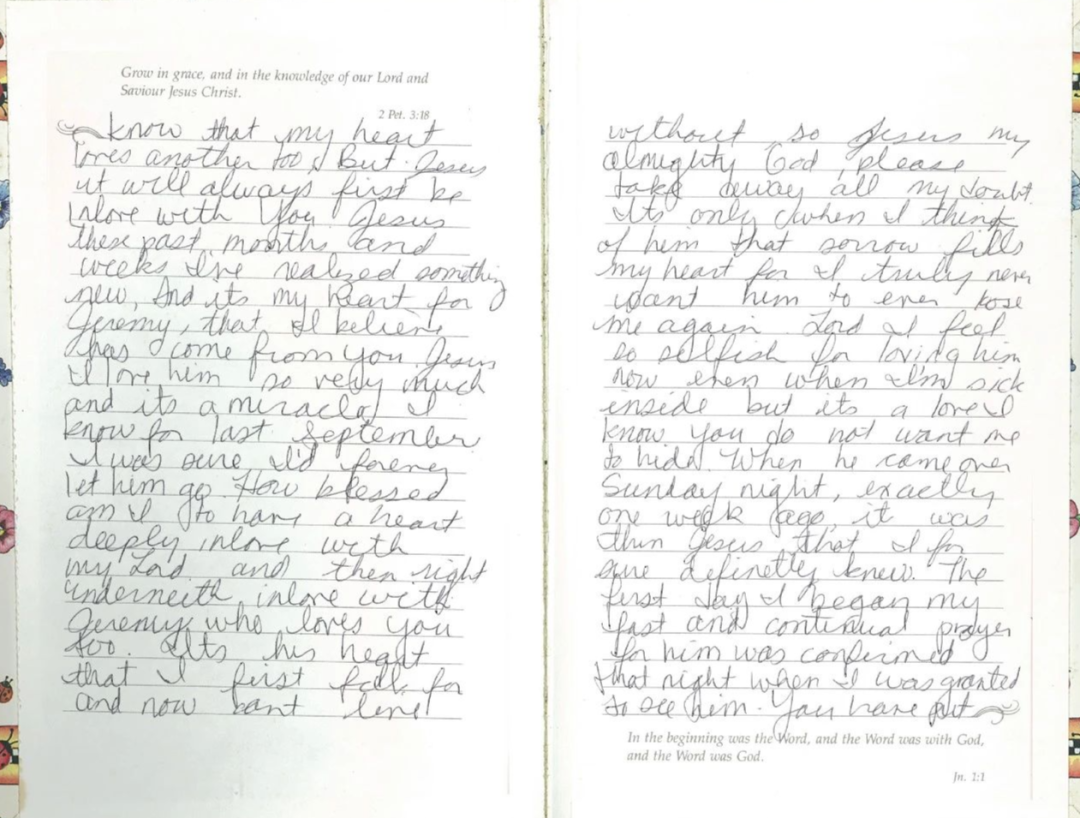 Grow in grace, and in the knowledge of our Lord and
Saviour Jesus Christ.
2 Pet. 3:18
know that my heart
loves another too, But Jesus
it will always first be
inlove with You Jesus
these past months and
weeks I've realized something
new, And its my heart for
Jeremy, that I believe
has come from you Jesus
I love him so very much
and its a miracle I
know for last September
I was sure I'd forever
let him go. How blessed
am I to have a heart
deeply inlove with
my Lord and then right
underneith inlove with
Jeremy who loves you
too. Its his heart
that I first fell for
and now cant live
without so Jesus my
almighty God please
take away all my doubt.
Its only when I think
of him that sorrow fills
my heart for I truly never
want him to ever lose
me again. Lord I feel
so selfish for loving him
now even when I'm sick
inside but its a love I
know you do not want me
to hide. When he came over
Sunday night, exactly
one week ago, it was
then Jesus that I for
sure definetly knew. The
first day I began my
fast and continual prayer
for him was confirmed
that night when I was granted
to see him. You have put
In the beginning was the Word, and the Word was with God,
and the Word was God.
Jn. 1:1